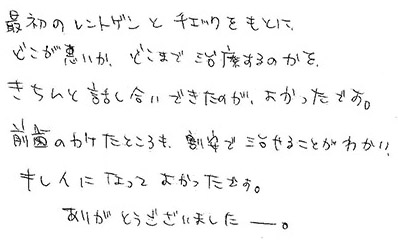 最初のレントゲンとチェックをもとに、
どこが悪いか、どこまで治療するのかを、
きちんと話し合いできたのが、よかったです。
前歯のかけたところも、割安で治せることがわかり、
キレイになってよかったです。
ありがとうございましたー。